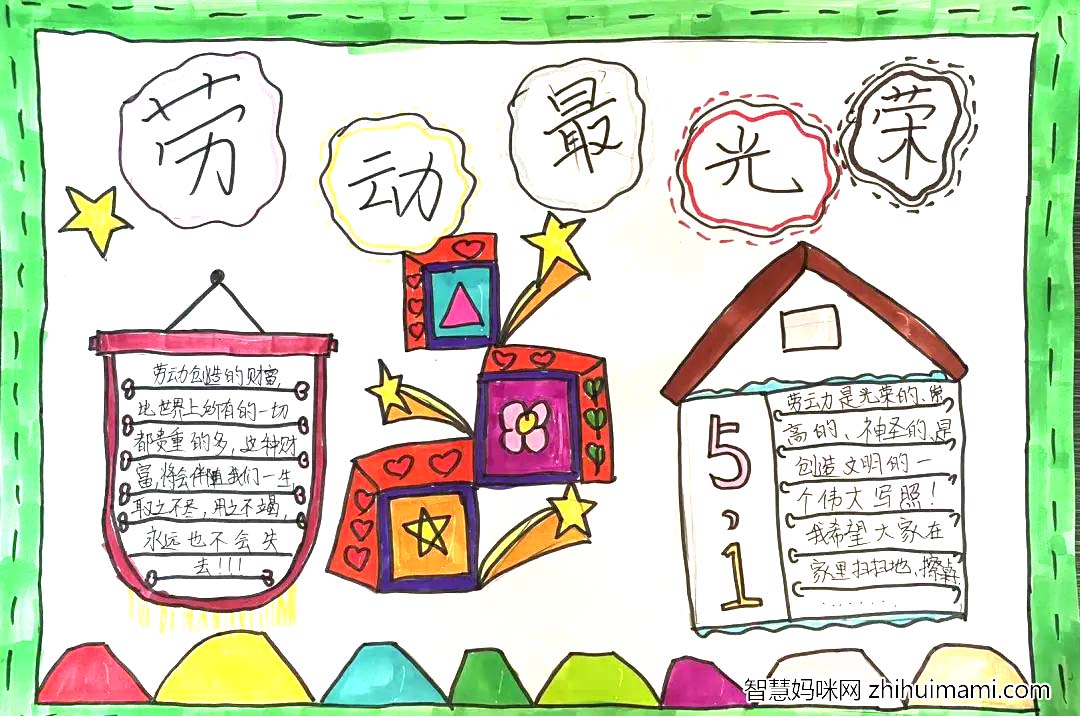 劳动最光荣
劳动创造的财富,
比世界上所有的一切
都贵重的多,这种财
富,将会伴随我们一生
取之不尽,用之不竭,
永远也不会失
去!!!
5,1
劳动是光荣的、崇
高的、神圣的、是
创造文明的一
个伟大写照!
我希望大家在
家里扫扫地、擦桌
........
智慧妈咪网 zhihuimami.com